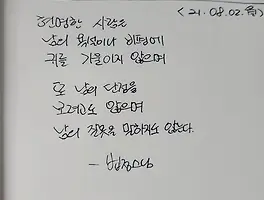 <'21.08.02.(월)
현명한 사람은
남의 욕설이나 비평에
귀를 기울이지 않으며
또 남의 단점을
보려고도 않으며
남의 잘못을 말하지도 않는다.
- 법정스님